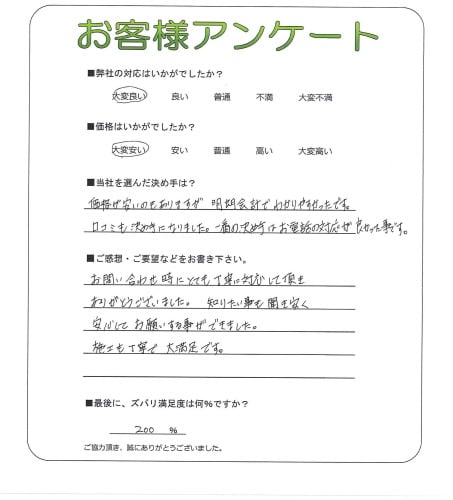 お客様アンケート
■弊社の対応はいかがでしたか？
大変良い 良い 普通 不満 大変不満
■価格はいかがでしたか？
大変安い 安い 普通 高い 大変高い
■当社を選んだ決め手は？
価格が安いのもありますが 明朗会計でわかりやすかったです。
口コミも決め手になりました。一番の決め手はお電話の対応が良かった事です。
■ご感想・ご要望などをお書き下さい。
お問い合わせ時にとても丁寧に対応して頂き
ありがとうございました。 知りたい事も聞き安く
安心してお願いする事ができました。
施工も丁寧で大満足です。
■最後に、ズバリ満足度は何％ですか？
200 ％
ご協力頂き、誠にありがとうございました。